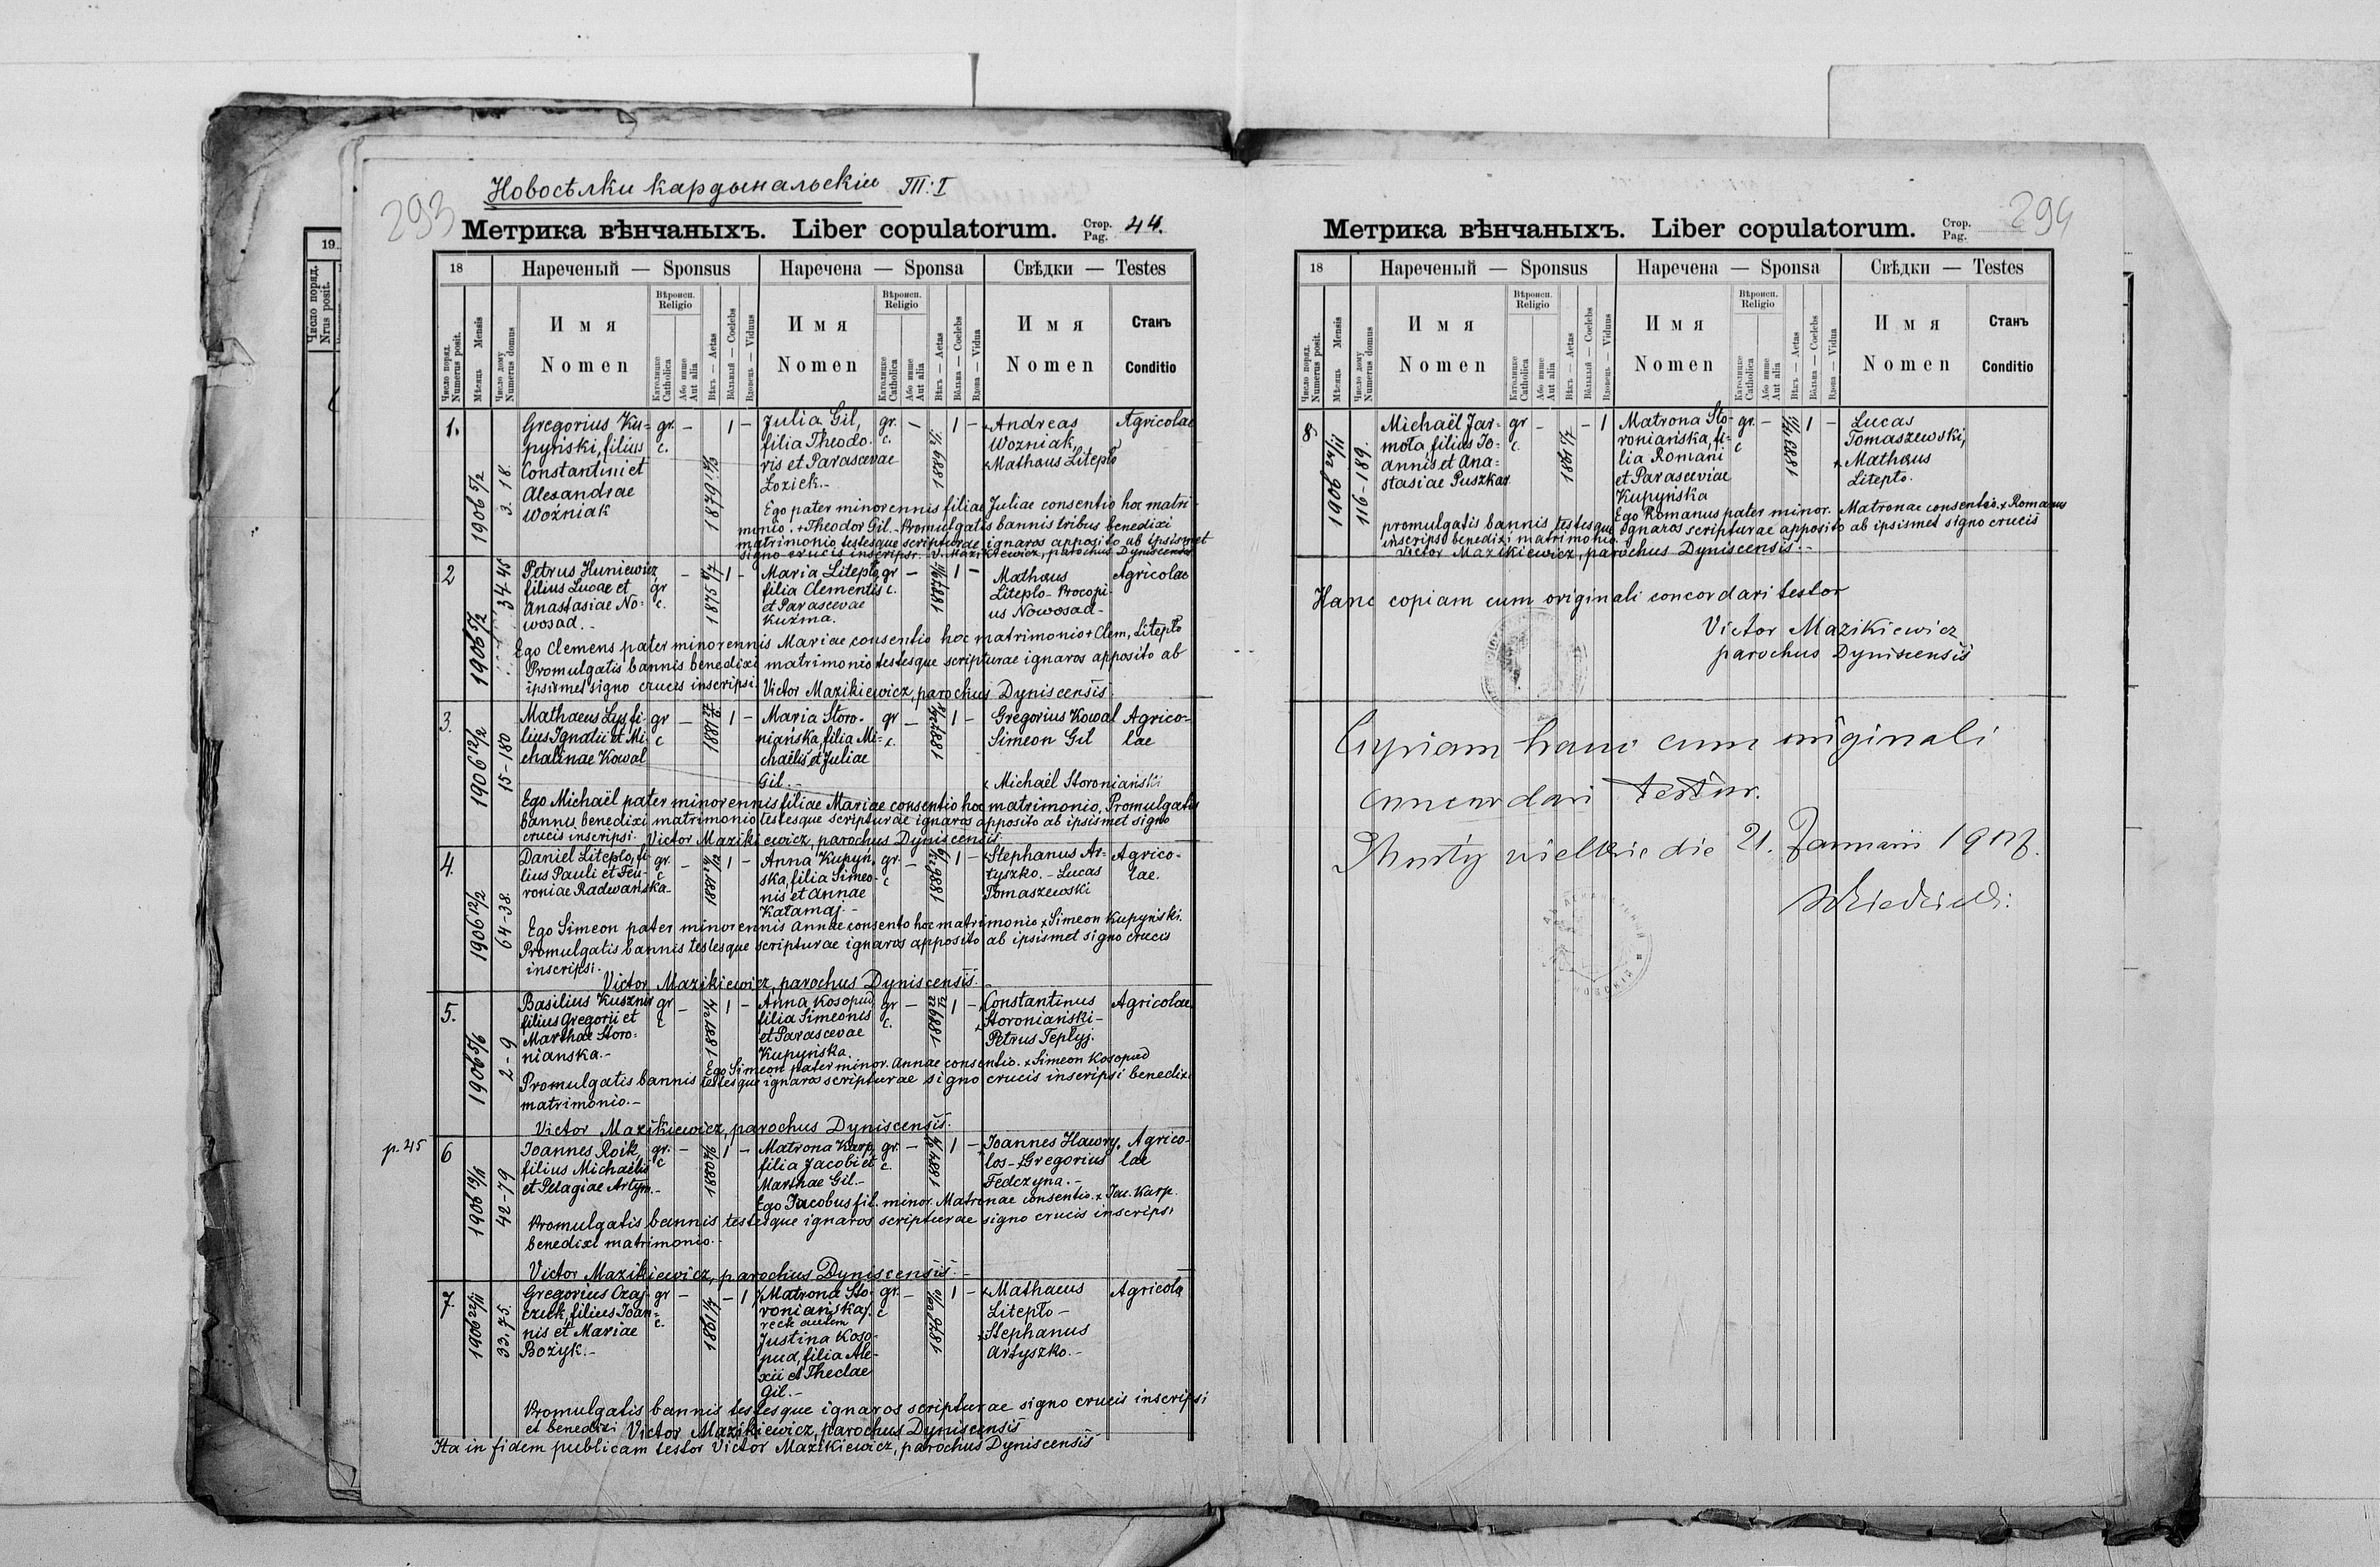 Новосѣлки кардынальскіи Т:I
293
Метрика вѣнчаныхъ. Liber copulatorum. Стор. Pag. 44.
18
Нареченый — Sponsus
Наречена — Sponsa
Свѣдки — Testes
Число поряд. Numerus posit.
Мѣсяць Mensis
Число дому Numerus domus
И м я
Nomen
Вѣроисп. Religio
Католицке Catholica
Або инше Aut alia
Вѣкъ — Aetas
Вôльный — Coelebs
Вдовець — Viduus
И м я
Nomen
Вѣроисп. Religio
Католицке Catholica
Або инше Aut alia
Вѣкъ — Aetas
Вôльна — Coelebs
Вдова — Vidua
И м я
Nomen
Станъ
Conditio
19
Число поряд.
Nrus posit.
1.
1906 5/2
3. 18
Gregorius Ku=
pyński, filius
Constantini et
Alexandrae
Woźniak
gr. c.
–
1
–
Julia Gil,
filia Theodo-
ris et Parascevae
Łozick.-
gr. c.
–
1
–
+Andreas
Wozniak,
+Mathaus Litepło
Agricolae
Ego pater minorennis filiae Juliae consentio hoc matri-
monio. +Theodor Gil.- Promulgatis bannis tribus benedixi
matrimonio testesque scripturae ignaros apposito ab ipsismet
signo crucis inscripsi. V. Mazikiewicz, parochus Dyniscensis
2
1906 5/2
34-45
Petrus Huniewicz
filius Lucae et
Anastasiae No=
wosad.-
gr c.
–
1
–
Maria Litepło
filia Clementis
et Parascevae
Kuzma.
gr c.
–
1
–
Mathaus
Litepło- Procopi-
us Nowosad-
Agricolae
Ego Clemens pater minorennis Mariae consentio hoc matrimonio + Clem, Litepło
Promulgatis bannis benedixi matrimonio testesque scripturae ignaros apposito ab
ipsismet signo cruces inscripsi. Victor Mazikiewicz, parochus Dyniscensis
3.
1906 12/2
15-180
Mathaeus Lys fi-
lius Ignatii et Mi-
chalinae Kowal
gr c
–
1
–
Maria Storo-
niańska, filia Mi=
chaëlis et Juliae
Gil.-
gr c.
–
1
–
Gregorius Kowal
Simeon Gil
+ Michaël Storoniański
Agrico-
lae
Ego Michaël pater minorennis filiae Mariae consentio hoc matrimonio, Promulgatis
bannis benedixi matrimonio testesque scripturae ignaros apposito ab ipsismet signo
crucis inscripsi. Victor Mazikiewicz, parochus Dyniscensis
4.
1906 12/2
64-38.
Daniel Litepło, fi-
lius Pauli et Feu-
roniae Radwańska-
gr. c
–
1
–
Anna Kupyń-
ska, filia Simeo-
nis et Annae
Kałamaj.-
gr. c
–
1
–
+Stephanus Ar-
tyszko.- Lucas
Tomaszewski
Agrico-
lae.
Ego Simeon pater minorennis Annae consento hoc matrimonio x Simeon Kupyński.
Promulgatis bannis testesque scripturae ignaros apposito ab ipsismet signo crucis
inscripsi.
Victor Mazikiewicz, parochus Dyniscensis.-
5.
1906 5/6
2-9
Basilius Kusznir
filius Gregorii et
Marthae Storo=
nianska.-
gr c
–
1
–
Anna Kosopud
filia Simeonis
et Parascevae
Kupyńska.
gr c.
–
1
–
+Constantinus
Storoniański-
+Petrus Tepłyj.
Agricolae
Ego Simeon pater minor. Annae consentio. x Simeon Kosopud
Promulgatis bannis testesque ignaros scripturae signo crucis inscripsi benedixi
matrimonio.-
Victor Mazikiewicz, parochus Dyniscensis.
p. 45
6
1906 19/11
42-79
Joannes Roik,
filius Michaelis
et Pelagiae Artym.-
gr. c
–
1
–
Matrona Karp,
filia Jacobi et
Marthae Gil.-
gr. c
–
1
–
+Joannes Hawry-
los- +Gregorius
Fedczyna.-
Agrico-
lae
Ego Jacobus fil. minor. Matronae consentio. x Jac. Karp.
Promulgatis bannis testesque ignaros scripturae signo crucis inscripsi
benedixi matrimonio.-
Victor Mazikiewicz, parochus Dyniscensis.-
7.
1906 22/11
33. 75.
Gregorius Czaj-
czuk, filius Joan=
nis et Mariae
Bożyk.-
gr c.
–
–
1
Matrona Sto-
roniańska,
recte autem
Justina Koso-
pud, filia Ale-
xii et Theclae
Gil.-
gr. c
–
1
–
+Mathaeus
Litepło-
+Stephanus
Artyszko.-
Agricola
Promulgatis bannis testesque ignaros scripturae signo crucis inscripsi
et benedixi Victor Mazikiewicz, parochus Dyniscensis
Ita in fidem publicam testor Victor Mazikiewicz, parochus Dyniscensis
294
Метрика вѣнчаныхъ. Liber copulatorum. Стор. Pag.
18
Нареченый — Sponsus
Наречена — Sponsa
Свѣдки — Testes
Число поряд. Numerus posit.
Мѣсяць Mensis
Число дому Numerus domus
И м я
Nomen
Вѣроисп. Religio
Католицке Catholica
Або инше Aut alia
Вѣкъ — Aetas
Вôльный — Coelebs
Вдовець — Viduus
И м я
Nomen
Вѣроисп. Religio
Католицке Catholica
Або инше Aut alia
Вѣкъ — Aetas
Вôльна — Coelebs
Вдова — Vidua
И м я
Nomen
Станъ
Conditio
8
1906 24/11
116-189.
Michaël Jar-
moła, filius Jo-
annis et Ana=
stasiae Puszkar
gr c.
–
–
1
Matrona Sto-
roniańska, fi=
lia Romani
et Parasceviae
Kupyńska
gr. c
–
1
–
Lucas
Tomaszewski,
x Mathaus
Litepło.
Ego Romanus pater minor. Matronae consentio. x Romanus
promulgatis bannis testesque ignaros scripturae apposito ab ipsismet signo crucis
inscripsi benedixi matrimonio.
Victor Mazikiewicz, parochus Dyniscensis.-
Hanc copiam cum originali concordari testor
Victor Mazikiewicz
parochus Dyniscensis
Copiam hanc cum originali
concordari testor.
die 21. Januarii 1907.